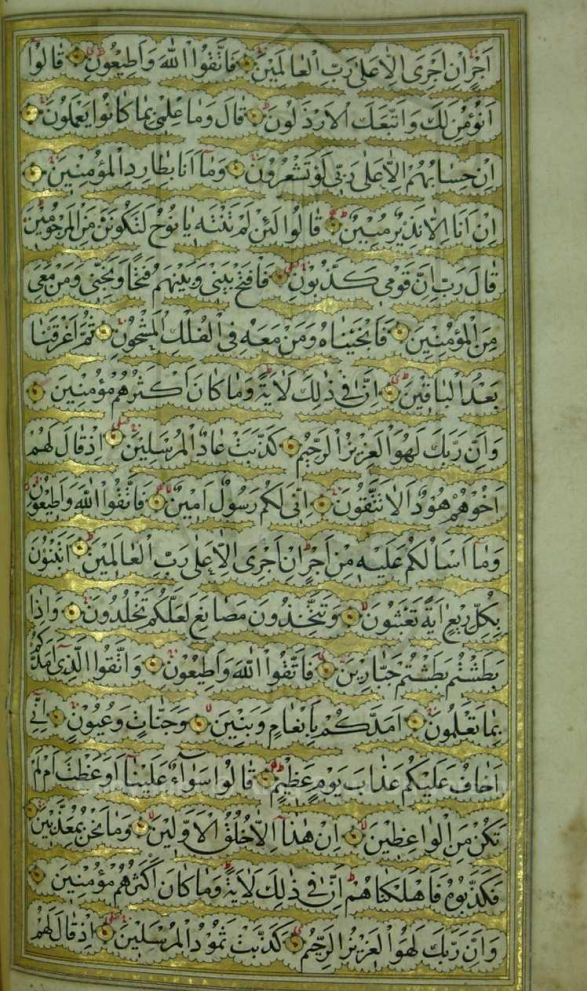 اَجْرٍ اِنْ اَجْرِىَ اِلَّا عَلٰى رَبِّ الْعَالَمِينَ فَاتَّقُوا اللّٰهَ وَاَطِيعُونِ قَالُوا
اَنُؤْمِنُ لَكَ وَاتَّبَعَكَ الْاَرْذَلُونَ قَالَ وَمَا عِلْمِى بِمَا كَانُوا يَعْمَلُونَ
اِنْ حِسَابُهُمْ اِلَّا عَلٰى رَبِّى لَوْ تَشْعُرُونَ وَمَا اَنَا بِطَارِدِ الْمُؤْمِنِينَ
اِنْ اَنَا اِلَّا نَذِيرٌ مُبِينٌ قَالُوا لَئِنْ لَمْ تَنْتَهِ يَا نُوحُ لَتَكُونَنَّ مِنَ الْمَرْجُومِينَ
قَالَ رَبِّ اِنَّ قَوْمِى كَذَّبُونِ فَافْتَحْ بَيْنِى وَبَيْنَهُمْ فَتْحًا وَنَجِّنِى وَمَنْ مَعِىَ
مِنَ الْمُؤْمِنِينَ فَاَنْجَيْنَاهُ وَمَنْ مَعَهُ فِى الْفُلْكِ الْمَشْحُونِ ثُمَّ اَغْرَقْنَا
بَعْدُ الْبَاقِينَ اِنَّ فِى ذٰلِكَ لَاٰيَةً وَمَا كَانَ اَكْثَرُهُمْ مُؤْمِنِينَ
وَاِنَّ رَبَّكَ لَهُوَ الْعَزِيزُ الرَّحِيمُ كَذَّبَتْ عَادٌ الْمُرْسَلِينَ اِذْ قَالَ لَهُمْ
اَخُوهُمْ هُودٌ اَلَا تَتَّقُونَ اِنِّى لَكُمْ رَسُولٌ اَمِينٌ فَاتَّقُوا اللّٰهَ وَاَطِيعُونِ
وَمَا اَسْاَلُكُمْ عَلَيْهِ مِنْ اَجْرٍ اِنْ اَجْرِىَ اِلَّا عَلٰى رَبِّ الْعَالَمِينَ اَتَبْنُونَ
بِكُلِّ رِيعٍ اٰيَةً تَعْبَثُونَ وَتَتَّخِذُونَ مَصَانِعَ لَعَلَّكُمْ تَخْلُدُونَ وَاِذَا
بَطَشْتُمْ بَطَشْتُمْ جَبَّارِينَ فَاتَّقُوا اللّٰهَ وَاَطِيعُونِ وَاتَّقُوا الَّذِى اَمَدَّكُمْ
بِمَا تَعْلَمُونَ اَمَدَّكُمْ بِاَنْعَامٍ وَبَنِينَ وَجَنَّاتٍ وَعُيُونٍ اِنِّى
اَخَافُ عَلَيْكُمْ عَذَابَ يَوْمٍ عَظِيمٍ قَالُوا سَوَاءٌ عَلَيْنَا اَوَعَظْتَ اَمْ لَمْ
تَكُنْ مِنَ الْوَاعِظِينَ اِنْ هٰذَا اِلَّا خُلُقُ الْاَوَّلِينَ وَمَا نَحْنُ بِمُعَذَّبِينَ
فَكَذَّبُوهُ فَاَهْلَكْنَاهُمْ اِنَّ فِى ذٰلِكَ لَاٰيَةً وَمَا كَانَ اَكْثَرُهُمْ مُؤْمِنِينَ
وَاِنَّ رَبَّكَ لَهُوَ الْعَزِيزُ الرَّحِيمُ كَذَّبَتْ ثَمُودُ الْمُرْسَلِينَ اِذْ قَالَ لَهُمْ